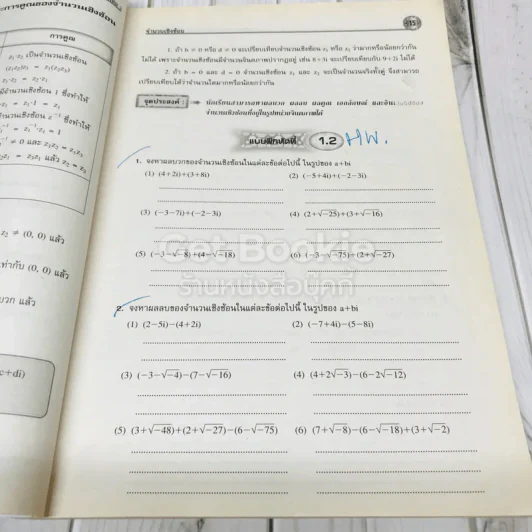 การคูณของจำนวนเชิงซ้อน
การคูณ
z₁·z₂ เป็นจำนวนเชิงซ้อน
z₂ ≠ (0, 0) แล้ว
เท่ากับ (0, 0) แล้ว
บวก แล้ว
c+di)
จำนวนเชิงซ้อน
15
1. ถ้า b ≠ 0 หรือ d ≠ 0 จะเปรียบเทียบจำนวนเชิงซ้อน z₁ หรือ z₂ ว่ามากหรือน้อยกว่ากัน
ไม่ได้ เพราะจำนวนเชิงซ้อนมีจำนวนจินตภาพปรากฏอยู่ เช่น 8+5i จะเปรียบเทียบกับ 9+2i ไม่ได้
2. ถ้า b = 0 และ d = 0 จำนวนเชิงซ้อน z₁ และ z₂ จะเป็นจำนวนจริงทั้งคู่ จึงสามารถ
เปรียบเทียบได้ว่าจำนวนใดมากหรือน้อยกว่ากัน
จุดประสงค์
นักเรียนสามารถหาผลบวก ผลลบ ผลคูณ
จำนวนเชิงซ้อนที่อยู่ในรูปหน่วยจินตภาพได้
แบบฝึกหัดที่ 1.2 HW.
1. จงหาผลบวกของจำนวนเชิงซ้อนในแต่ละข้อต่อไปนี้ ในรูปของ a+bi
(1) (4+2i)+(3+8i) (2) (−5+4i)+(−2−3i)
(3) (−3−7i)+(−2−3i) (4) (2+√−25)+(3+√−16)
(5) (−3−√−8)+(4−√−18) (6) (−3−√−75)+(2+√−27)
Get Bookie
ร้านหนังสือบุ๊คกี้
2. จงหาผลลบของจำนวนเชิงซ้อนในแต่ละข้อต่อไปนี้ ในรูปของ a+bi
(1) (2−5i)−(4+2i) (2) (−7+4i)−(5−8i)
(3) (−3−√−4)−(7−√−16) (4) (4+2√−3)−(6−2√−12)
(5) (3+√−48)+(2+√−27)−(6−√−75) (6) (7+√−8)−(6−√−18)+(3+√−2)